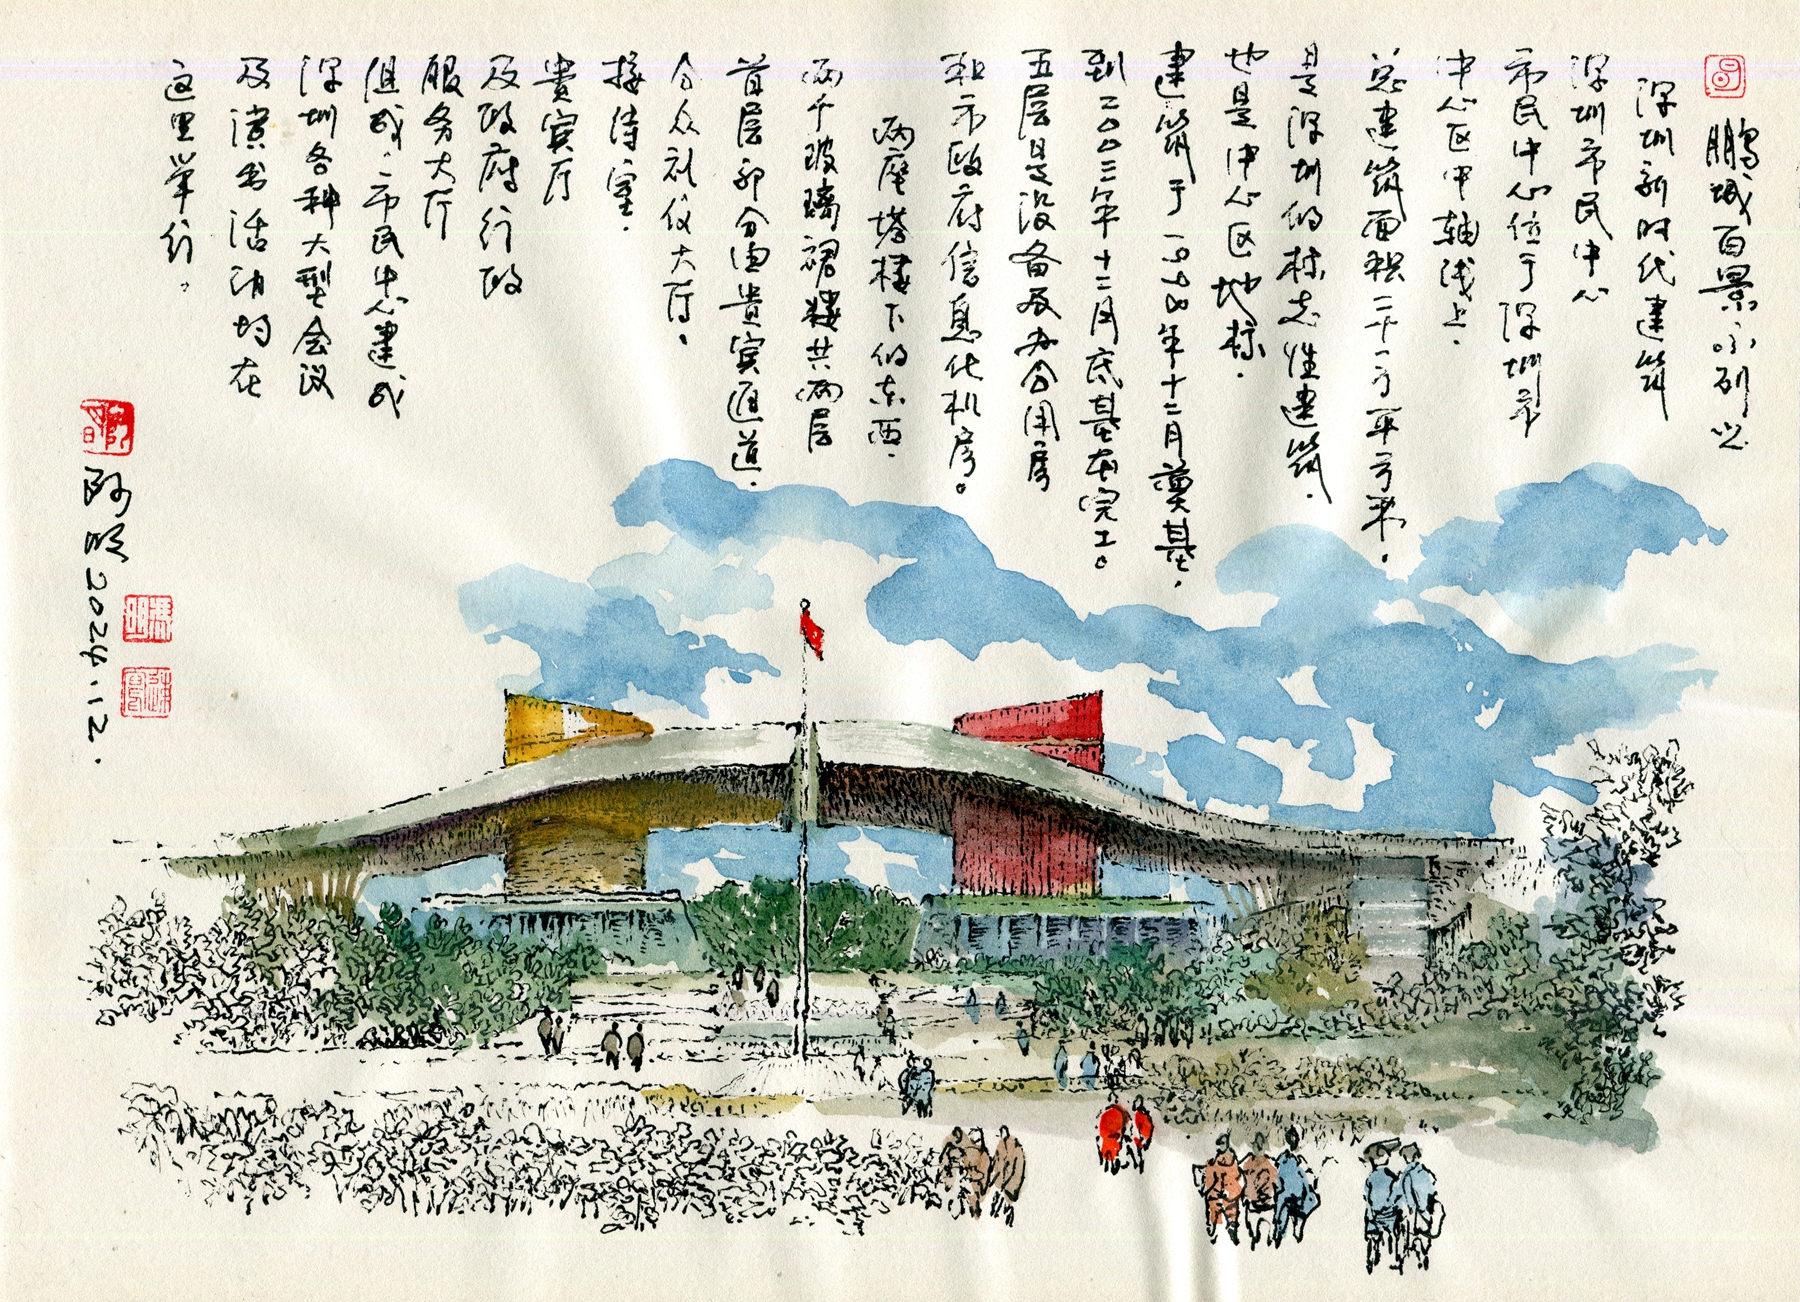 鹏城百景系列之
深圳新时代建筑
深圳市民中心
市民中心位于深圳市
中心区中轴线上.
总建筑面积二十一万平方米.
是深圳的标志性建筑.
也是中心区地标.
建筑于一九九八年十二月奠基,
到二〇〇三年十二月底基本完工。
五层是设备及办公用房
和市政府信息化机房。
两座塔楼下的东西.
两千玻璃裙楼共两层
首层部分由贵宾通道.
公众礼仪大厅.
接待室.
贵宾厅
及政府行政
服务大厅
组成.市民中心建成
深圳各种大型会议
及演出活动均在
这里举行。
阿顺 2024.12.